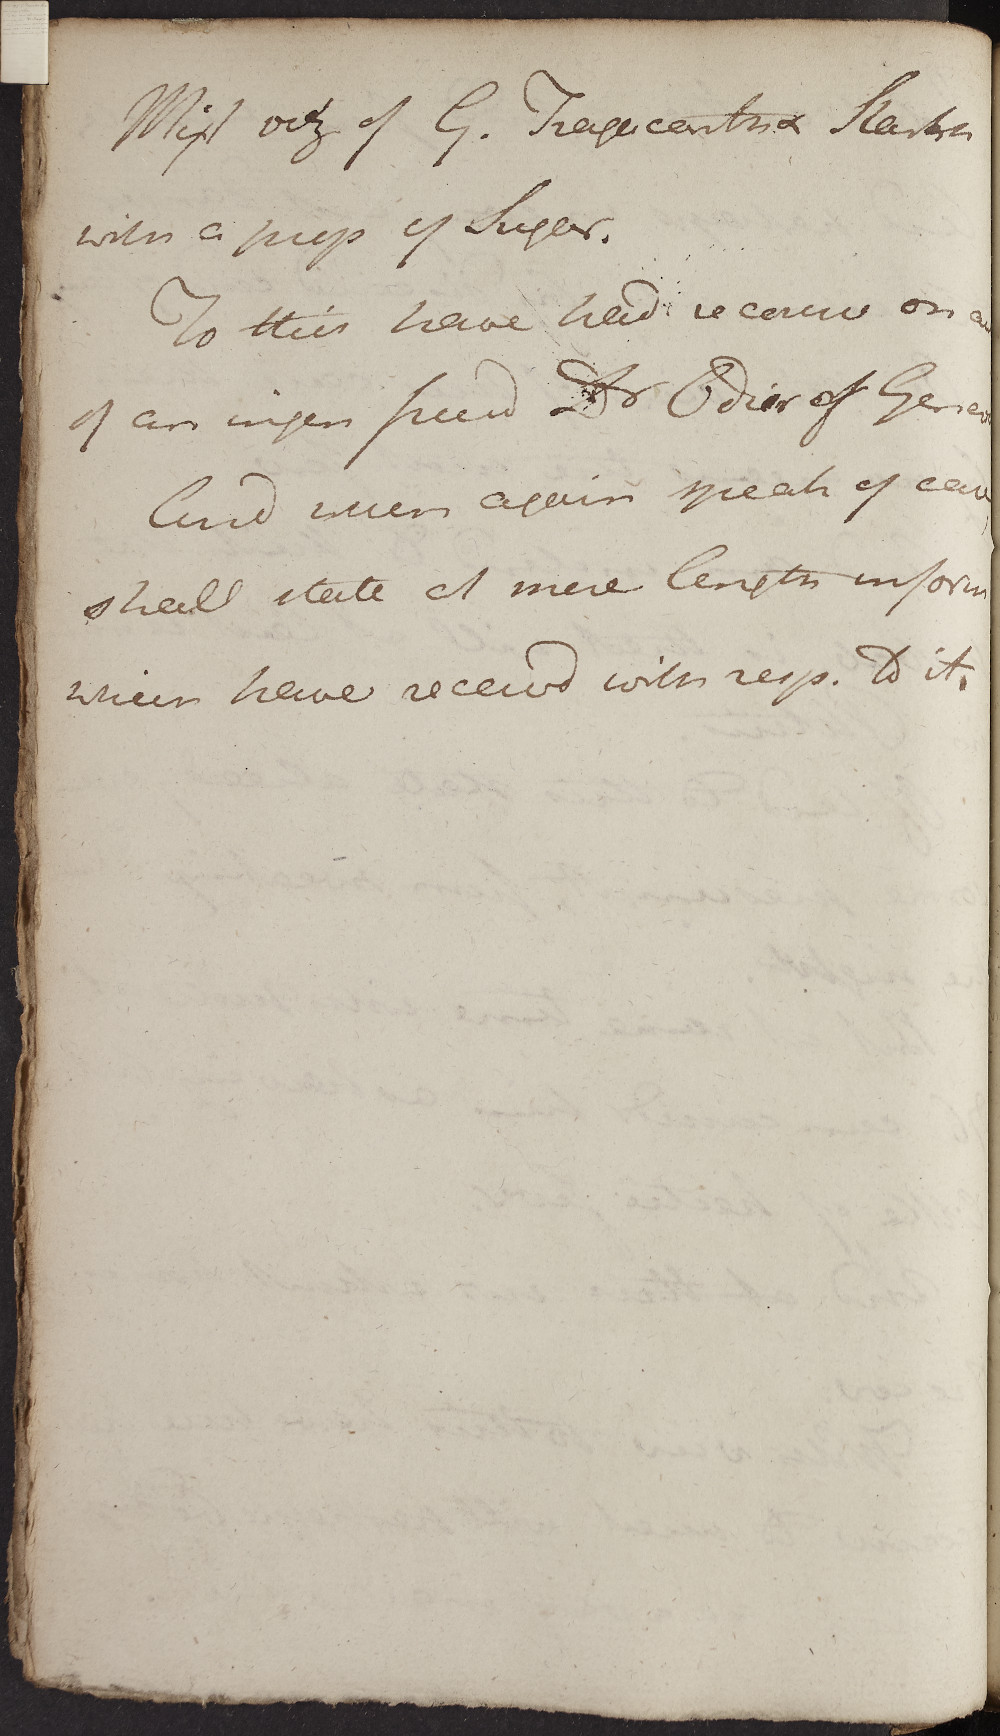 Mixt of G. Tragacanth & Starch
with a prop of Sugar.
To this have had recourse on
of an ingen friend Dr Odier of Genev
And when again speak of
shall state at more length inform
which have receivd with resp. to it.